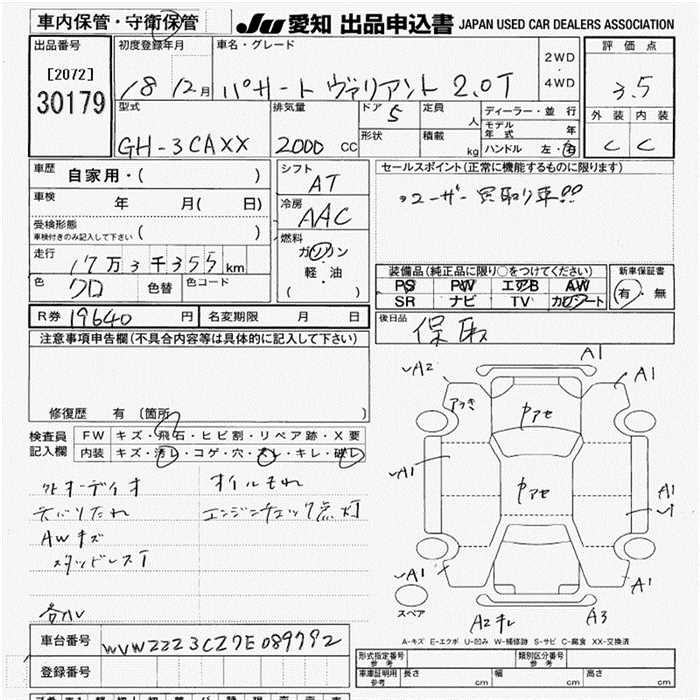 車内保管・守衛保管
JU 愛知 出品申込書 JAPAN USED CAR DEALERS ASSOCIATION
出品番号
[2072]
30179
初度登録年月
18 12月
車名・グレード
パサート ヴァリアント 2.0T
2WD
4WD
評価点
3.5
外装 内装
C C
型式
GH-3CAXX
排気量
2000 CC
ドア 5
形状
定員 人
積載 kg
ディーラー・並行
モデル年式 年
ハンドル 左・右
車歴 自家用・( )
車検 年 月( 日)
受検形態
車検付きのみ記入して下さい ( )
走行 17万3千355 km
色 クロ 色替 色コード
シフト
AT
冷房
AAC
燃料
ガソリン
軽・油
( )
セールスポイント(正常に機能するものに限ります)
ユーザー買取り車!!
装備品(純正品に限り○をつけてください)
PS PW エアB AW
SR ナビ TV カワシート
新車保証書
有・無
R券 19640 円 名変期限 月 日
後日品 保取
注意事項申告欄(不具合内容等は具体的に記入して下さい)
修復歴 有 [箇所 ]
検査員記入欄
FW キズ・飛石・ヒビ割・リペア跡・X要
内装 キズ・汚レ・コゲ・穴・スレ・キレ・破レ
社外オーディオ オイルもれ
天バリたれ エンジンチェック点灯
AWキズ
スタッドレスT
各ハレ
A2 A1 A1
アつき
ヤアセ
A1
ヤアセ
A1
A1 A1
スペア
A2チレ A3
A-キズ E-エクボ U-凹み W-補修跡 S-サビ C-腐食 XX-交換済
車台番号 WVWZZZ3CZ7E089792
登録番号
形式指定番号 参考 類別区分番号 参考
車庫証明用 参考 長さ cm 幅 cm 高さ cm